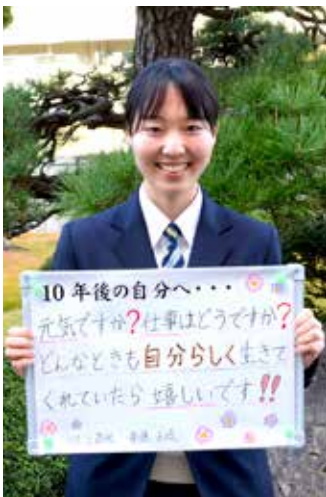 10年後の自分へ・・・
元気ですか?仕事はどうですか?
どんなときも自分らしく生きて
くれていたら嬉しいです!!